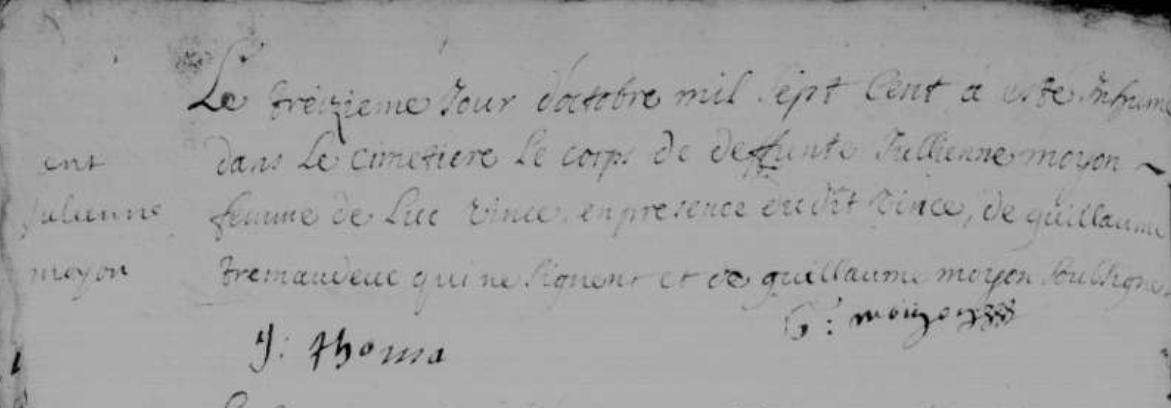 Le treizieme Jour d'octobre mil sept Cent a este Inhumé
ent dans Le cimetiere Le corps de deffunte Jullienne moyon
Julienne femme de Luc Vince, en presence dudit Vince, de guillaume
moyon tremaudeuc qui ne signent et de guillaume moyon soussigné
G: moyon
J: thoma